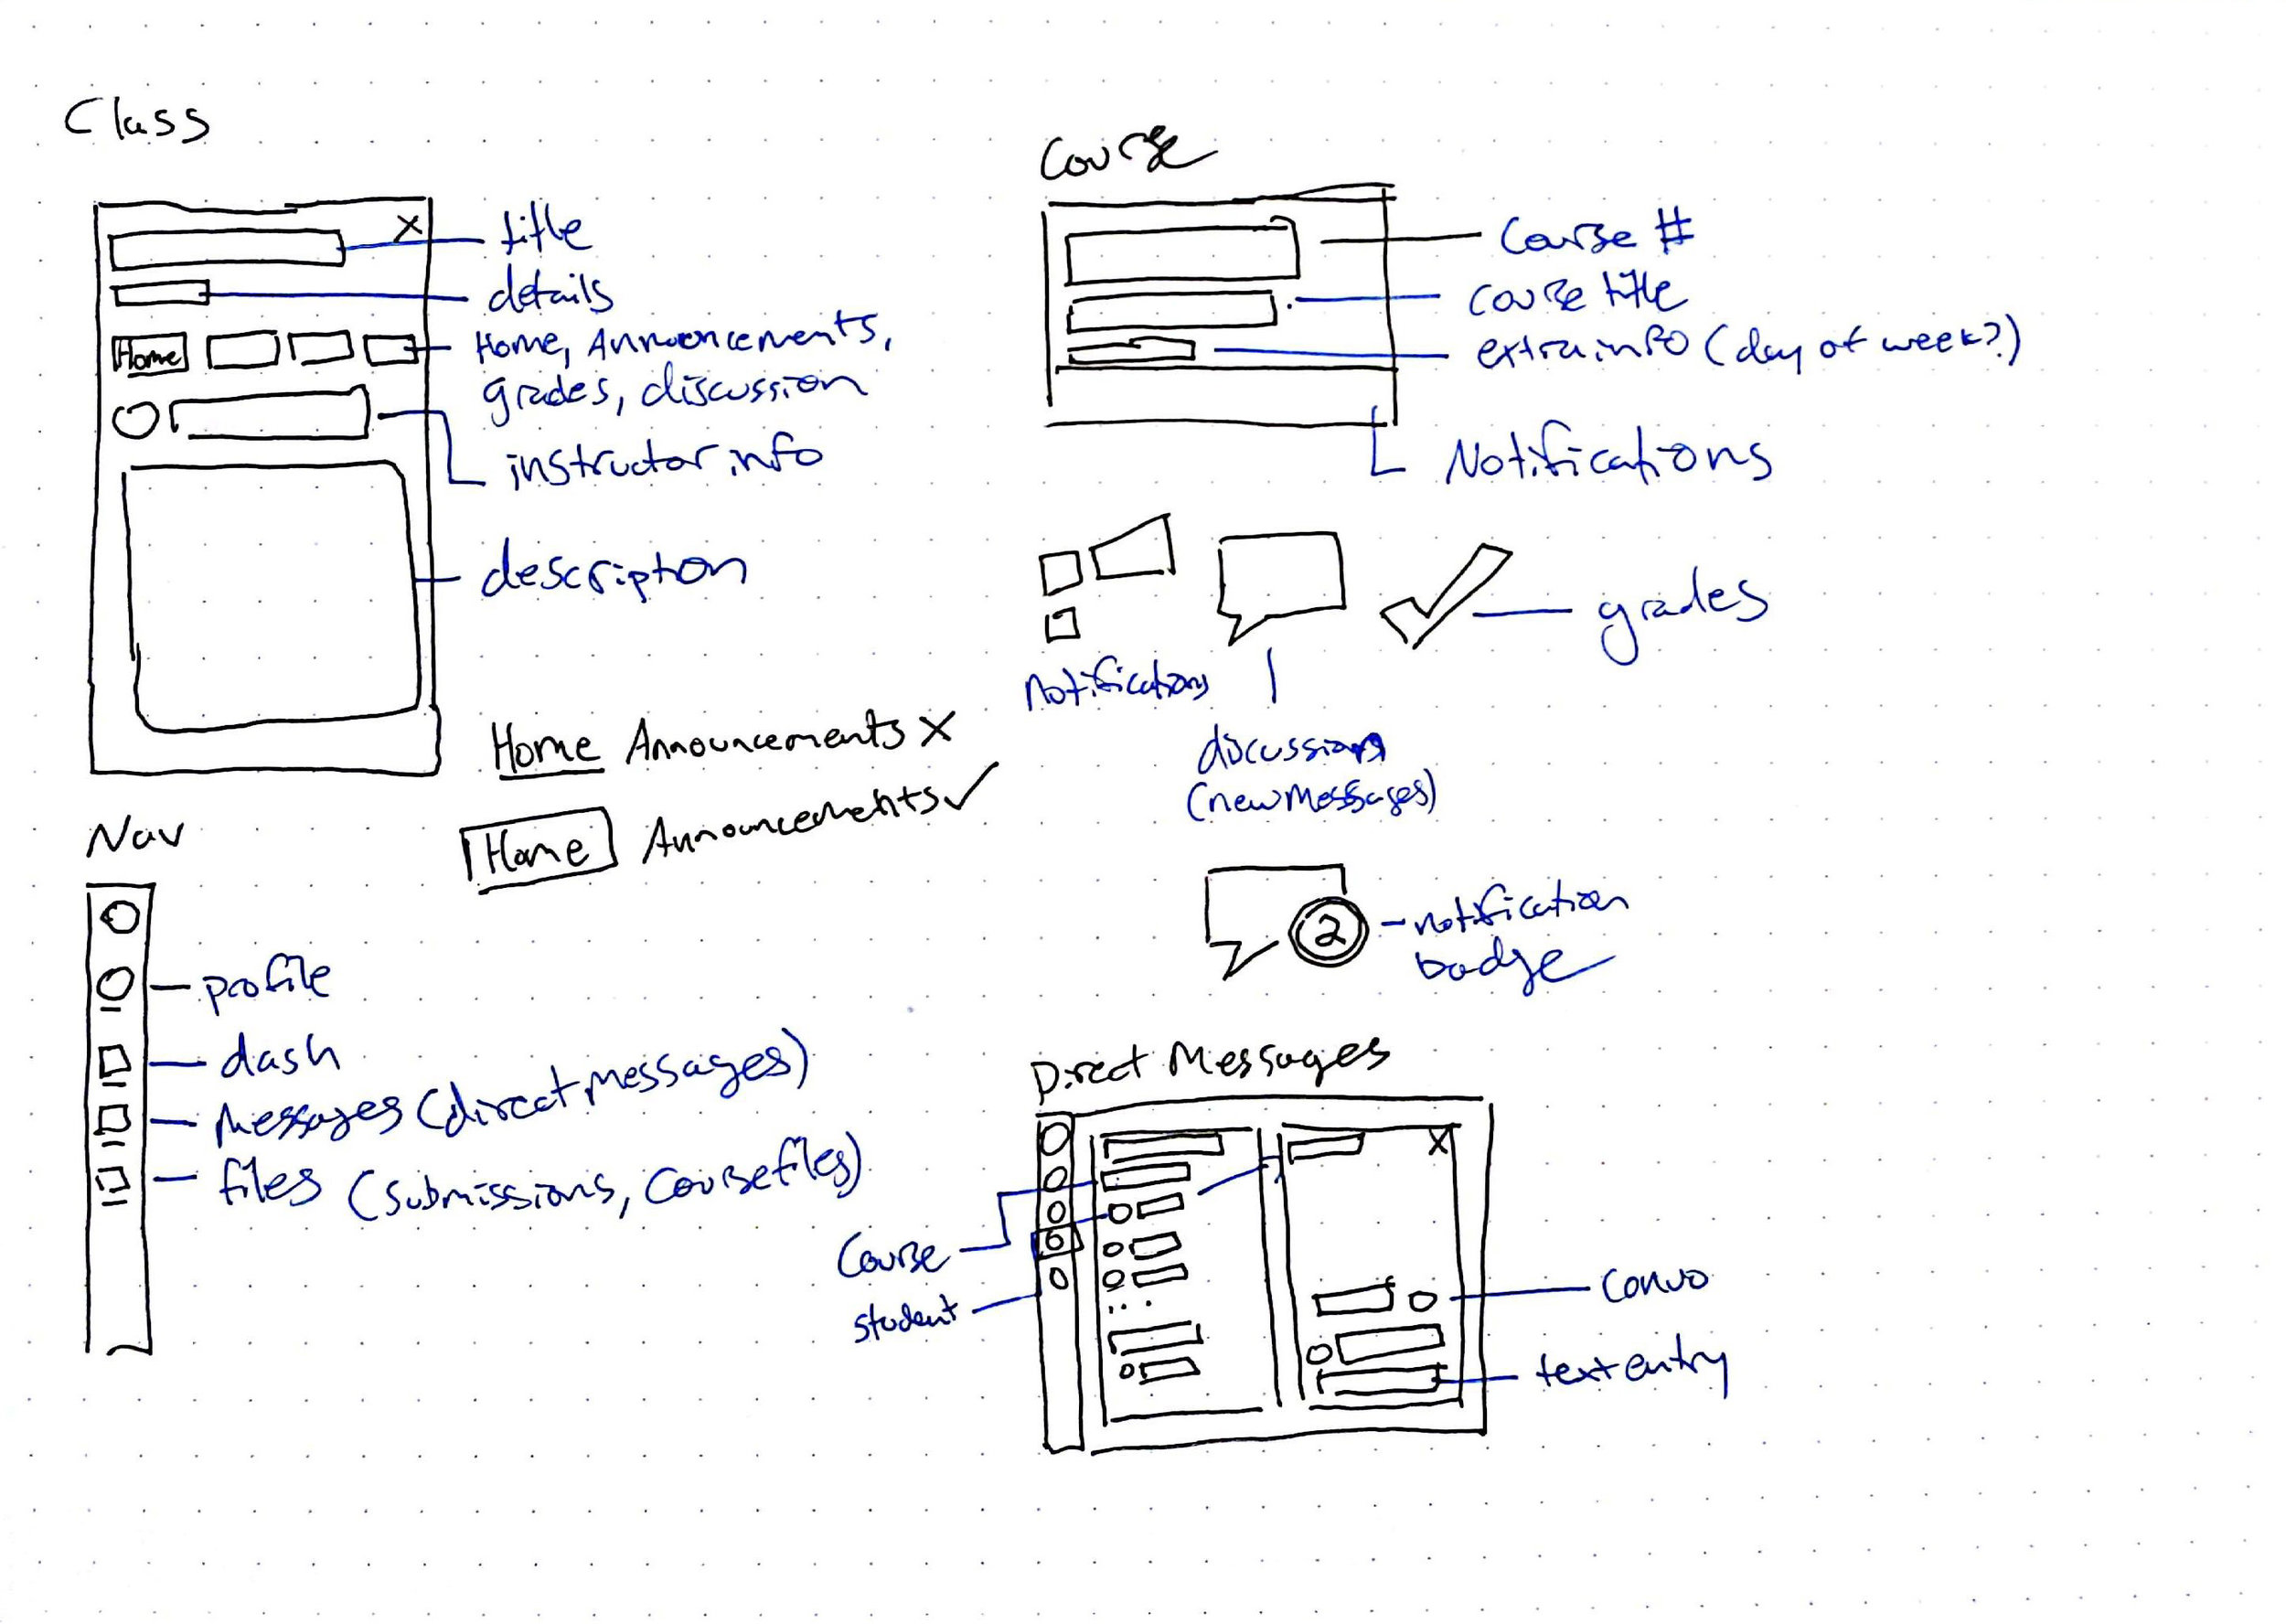 Class
X
title
details
Home
Home, Announcements,
grades, discussion
instructor info
description
Home Announcements X
Home Announcements ✓
Nav
profile
dash
Messages (direct messages)
files (submissions, course files)
Course
Course #
course title
extra info (day of week?)
Notifications
grades
notifications
discussions
(new messages)
2
notification
badge
Direct Messages
X
Course
student
convo
text entry